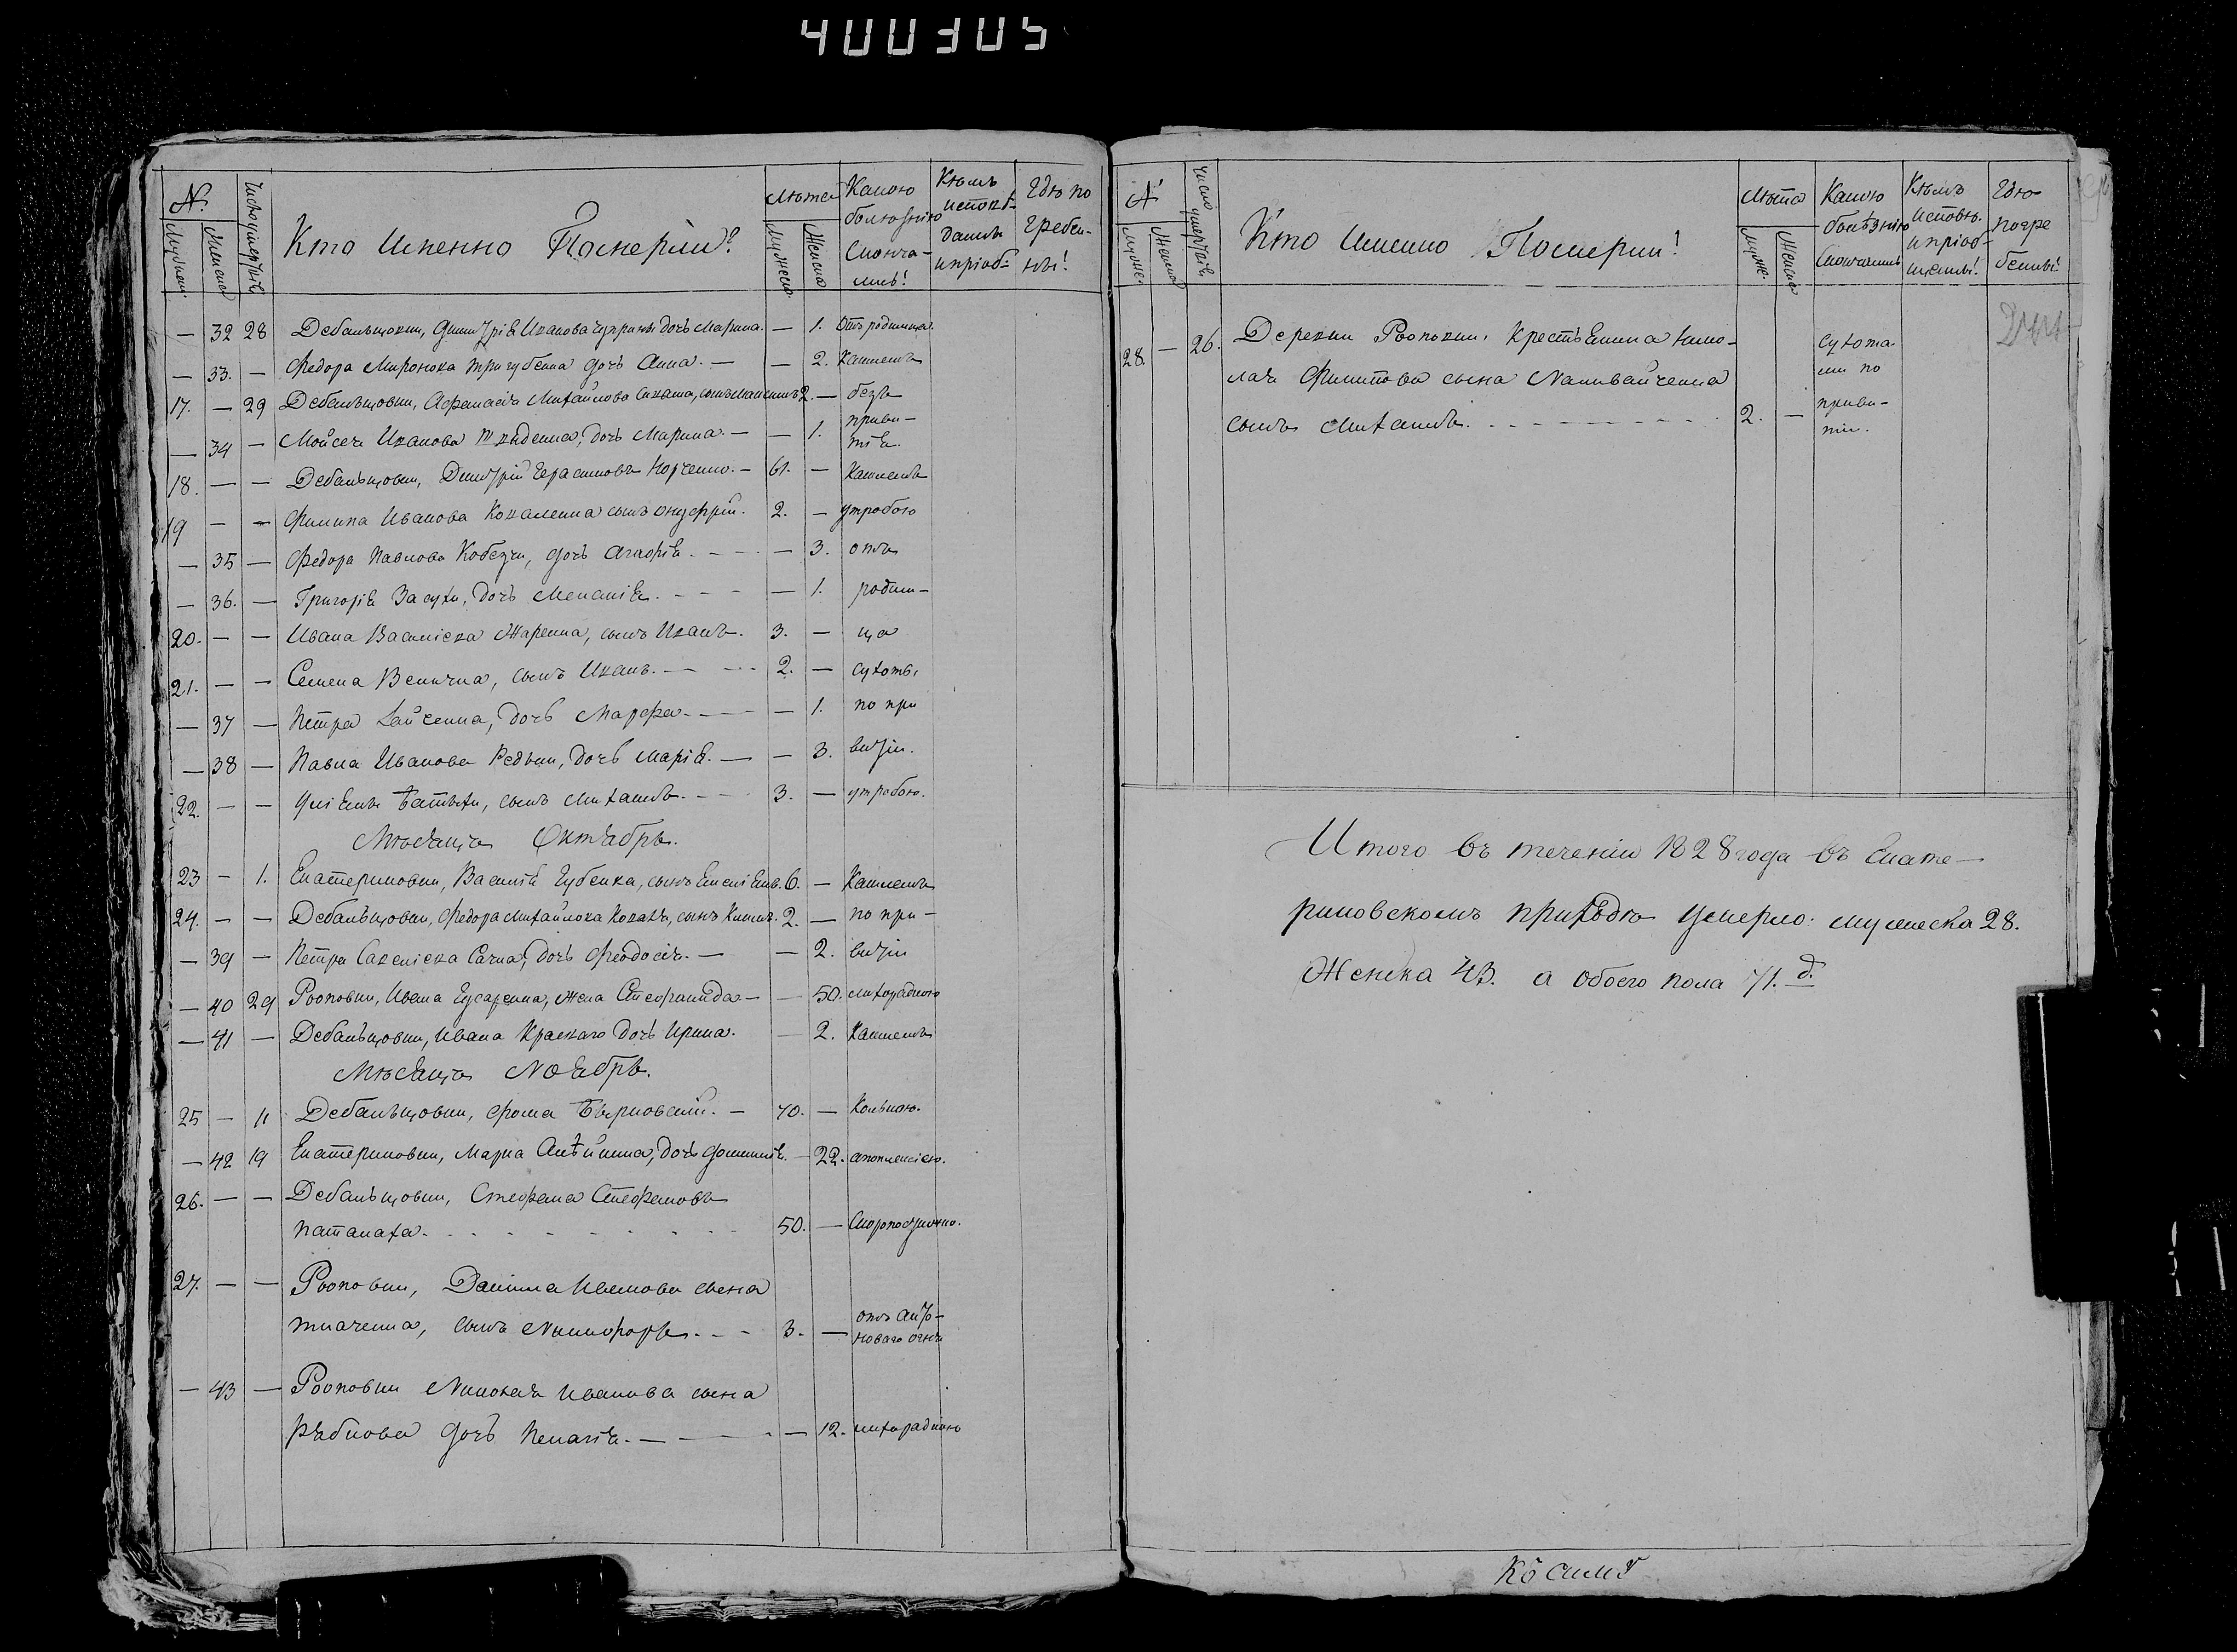 400305
№. Число умершихъ Кто именно Померли? Лѣта Какою болѣзнію скончались! Кѣмъ исповѣданы и пріоб- Гдѣ погребены!
Мужеск. Женска Мужеска Женска
— 32 28 Дебальцовки, Димитрія Иванова Чуприны дочь Марина. — 1. Отъ родимца
— 33. — Федора Миронова Тригубенка дочь Анна. — — 2. Кашлемъ
17. — 29 Дебальцовки, Афанасія Михайлова сынъ 2. — безъ
приви-
— 34 — Мойсея Иванова дочь Марина. — — 1. тія
18. — — Дебальцовки, Димитрій Герасимовъ Корченко. — 61. — Кашлемъ
19 — — Филипа Иванова Коваленка сынъ Онуфрій. 2. — утробою
— 35 — Федора Павлова Кобезы, дочь Агафія. — 3. отъ
— 36. — Григорія Засухи, дочь Меланія. — 1. родим-
20. — — Ивана Василіева Жаренка, сынъ Иванъ. 3. — ца
21. — — Семена Величка, сынъ Иванъ. 2. — сухоты
— 37 — Петра Зайченка, дочь Марфа. — 1. по при
— 38 — Павла Иванова Редьки, дочь Марія. — — 3. витіи.
22. — — Батьхи, сынъ Михаилъ. 3. — утробою.
Мѣсяца Октябрь.
23 — 1. Екатериновки, Василія Губенка, сынъ 6. — Кашлемъ
24. — — Дебальцовки, Федора Михайлова Коваля, сынъ 2. — по при-
— 39 — Петра Савеліева Сачка, дочь Феодосія. — — 2. витіи
— 40 29 Роповки, Ивана Гусаренка, жена Стефанида — — 50. лихорадкою
— 41 — Дебальцовки, Ивана Краснаго дочь Ирина. — 2. Кашлемъ
Мѣсяца Ноябрь.
25 — 11 Дебальцовки, Фома Бырновскій. — 70. — Колькою.
— 42 19 Екатериновки, Марка дочь — 22. апоплексіею.
26. — — Дебальцовки, Стефана Стефановъ
Паталаха. 50. — Скоропостижно.
27. — — Роповки, Даніила Иванова сына
Ткаченка, сынъ Никифоръ. 3. — отъ анто-
новаго огня
— 43 — Роповки Николая Иванова сына
Рябкова дочь Пелагія. — — 12. лихорадкою
№ Число умершихъ Кто именно Померли! Лѣта Какою болѣзнію скончались Кѣмъ исповѣ. и пріобщены! Гдѣ погребены!
Муже. Женска Муже. Женска
28. — 26. Деревни Роповки, Крестьянина Нико-
лая Филипова сына Наливайченка
сынъ Михаилъ. 2. — сухота
ми по
приви-
тіи.
Итого въ теченіи 1828 года въ Екате-
риновскомъ приходѣ умерло: мужеска 28.
Женска 43. а обоего пола 71. д.